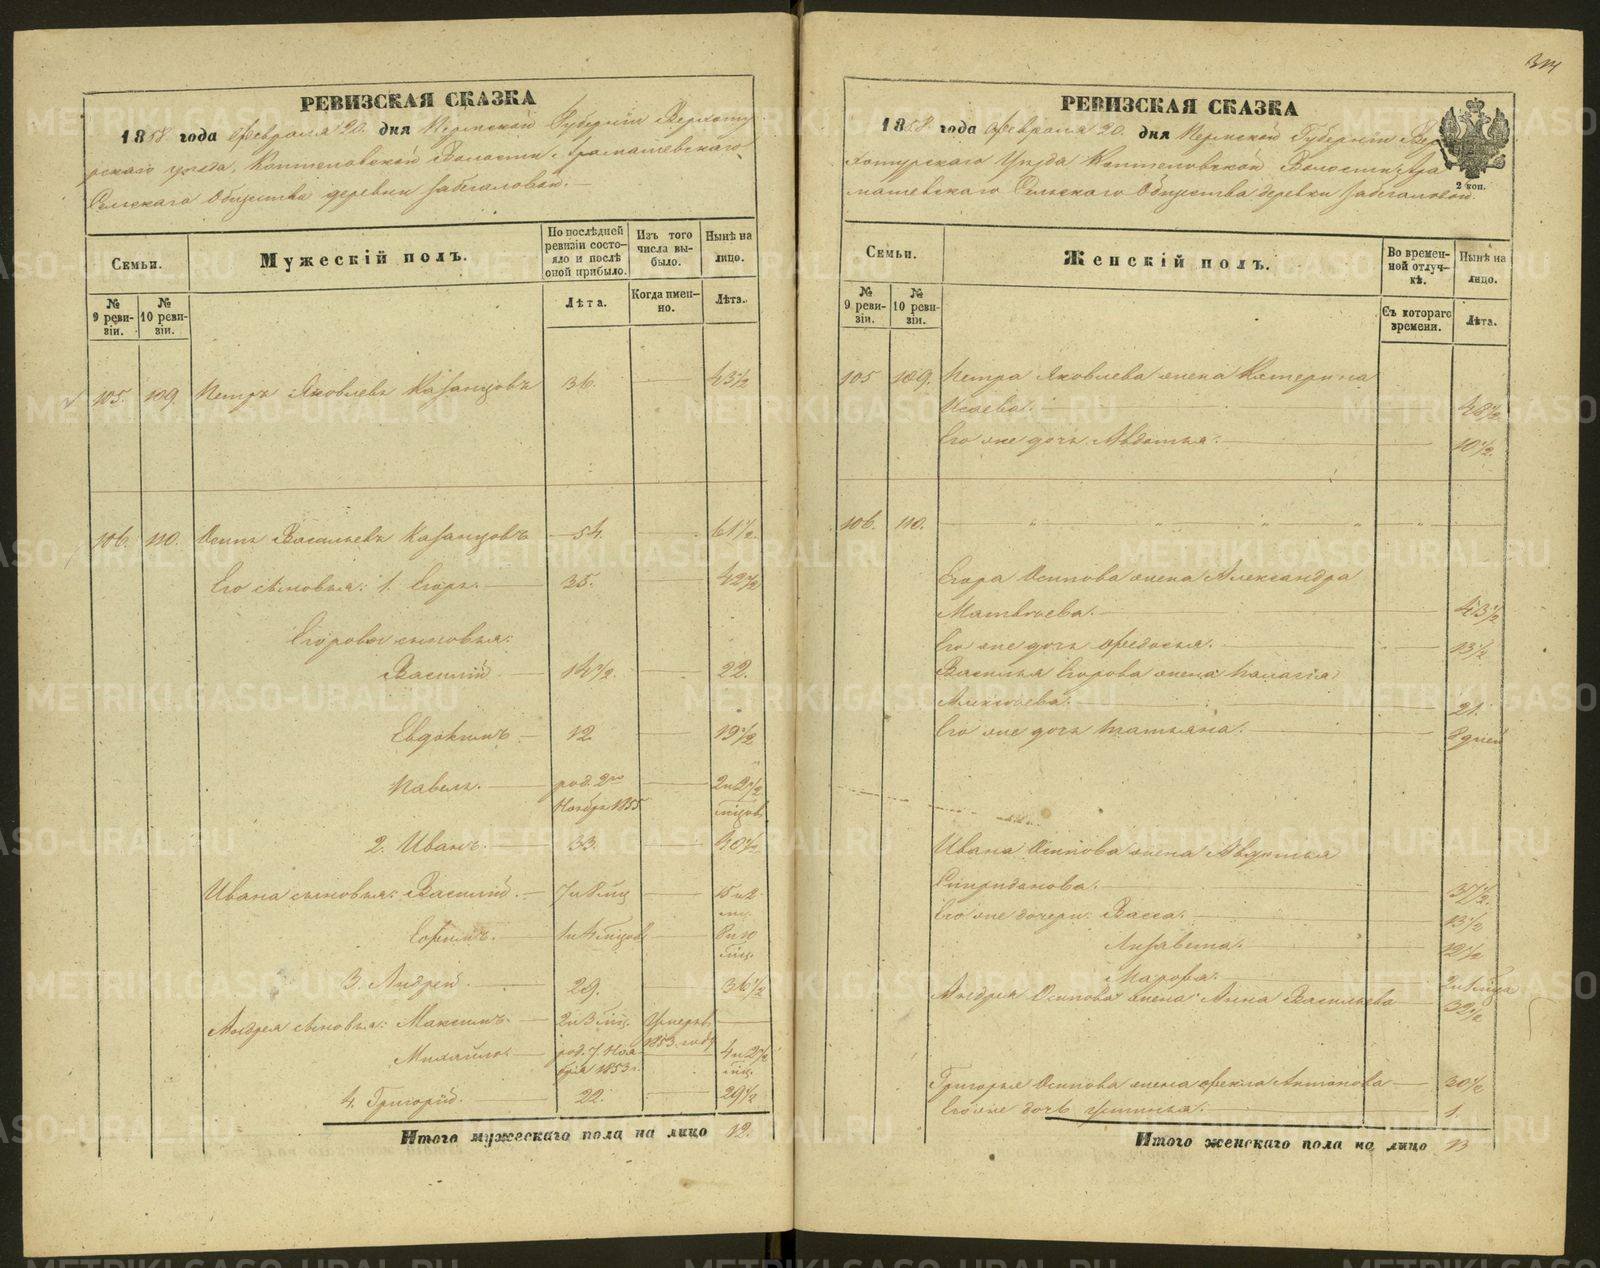 РЕВИЗСКАЯ СКАЗКА
1858 года Февраля 20. дня Пермской Губерніи Верхоту
рскаго уезда, Коптеловской Волости Арамашевскаго
Сельскаго Общества деревни Забегаловой.
Семьи.
Мужескій полъ.
По послѣдней ревизіи состояло и послѣ оной прибыло.
Изъ того числа выбыло.
Нынѣ на лицо.
№ 9 ревизіи.
№ 10 ревизіи.
Лѣта.
Когда именно.
Лѣта.
105. 109. Петръ Яковлевъ Казанцовъ 36. 43½
106. 110. Осипъ Васильевъ Казанцовъ 54. 61½.
Его сыновья: 1. Егоръ. 35. 42½
Егоровы сыновья:
Василій 14½. 22.
Евдокимъ 12 19½
Павелъ. род. 2го Ноября 1855 2 и 2½ мѣцов
2. Иванъ. 33. 40½
Ивана сыновья: Василій. 7 и 8 мц 15 и 2 мц.
Ефимъ. 1 и 4 мѣцов 8 и 10 мѣц.
3. Андрей 29. 36½
Андрея сыновья: Максимъ. 2 и 3 мѣц. Умеръ 1853 году
Михайло. род. 7 Ноября 1853 г. 4 и 2½ мѣц.
4. Григорій. 22. 29½
Итого мужескаго пола на лицо 12.
314
РЕВИЗСКАЯ СКАЗКА
1858 года Февраля 20. дня Пермской Губерніи Вер
хотурскаго Уезда Коптеловской Волости Ара
машевскаго Сельскаго Общества деревни Забегаловой.
2 коп.
Семьи.
Женскій полъ.
Во временной отлучкѣ.
Нынѣ на лицо.
№ 9 ревизіи.
№ 10 ревизіи.
Съ котораго времени.
Лѣта.
105 109. Петра Яковлева жена Катерина
Исаева. 48½
Его же дочь Авдотья. 10½.
106. 110. " " " " "
Егора Осипова жена Александра
Матвѣева. 43½
Его же дочь Федосья. 13½
Василья Егорова жена Палагія
Алексѣева. 21.
Его же дочь Татьяна. 8 дней
Ивана Осипова жена Авдотья
Спиридонова. 37½.
Его же дочери: Васса. 13½
Лизавета. 12½
Марфа.
Андрея Осипова жена Анна Васильева 32½
Григорья Осипова жена Фекла Антонова 30½
Его же дочь Устинья. 1.
Итого женскаго пола на лицо 13
METRIKI.GASO-URAL.RU